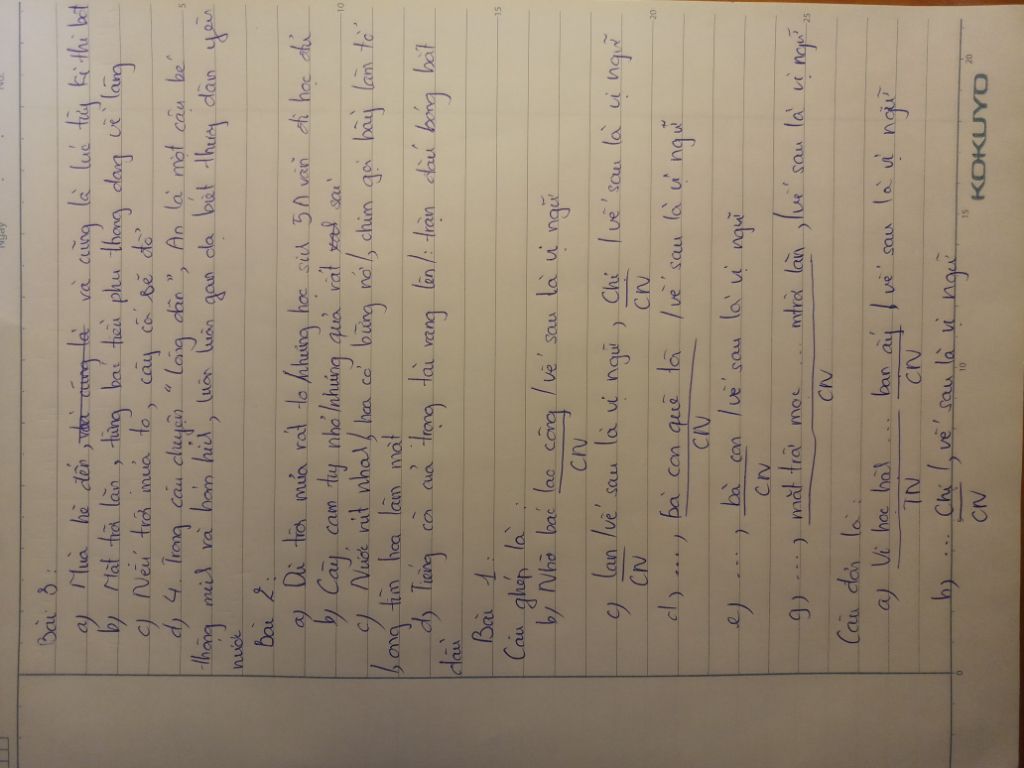 Bài 3:
a) Mùa hè đến, và cũng là lúc tùy kì thi bắt
b) Mặt trời lặn, từng bác tiều phu thong dong về làng
c) Nếu trời mưa to, cây cối sẽ đổ
d) 4 Trong câu chuyện "làng dân", An là một cậu bé
thông minh và hóm hỉnh, luôn luôn gan dạ biết thương dân yêu
nước
Bài 2:
a) Dù trời mưa rất to / nhưng học sinh 5A vẫn đi học đủ
b) Cây cam tuy nhỏ / nhưng quả rất sai
c) Nước rút nhanh /, hoa cỏ bừng nở /, chim gọi bầy làm tổ
/, ong tìm hoa làm mật
d) Tiếng còi của trọng tài vang lên /: trận đấu bóng bắt
đầu
Bài 1:
Câu ghép là:
b) Nhờ bác lao công / vế sau là vị ngữ
CN
c) Lan / vế sau là vị ngữ, Chi / vế sau là vị ngữ
CN CN
d) ..., bà con quê tôi / vế sau là vị ngữ
CN
e) ..., bà con / vế sau là vị ngữ
CN
g) ..., mặt trời mọc ... lặn, / vế sau là vị ngữ
CN
Câu đơn là:
a) Vì học hành ... bạn ấy /, vế sau là vị ngữ
TN CN
b) ... Chi /, vế sau là vị ngữ
CN
KOKUYO
5
10
15
20
25
0
10
15
20
Ngày
No.